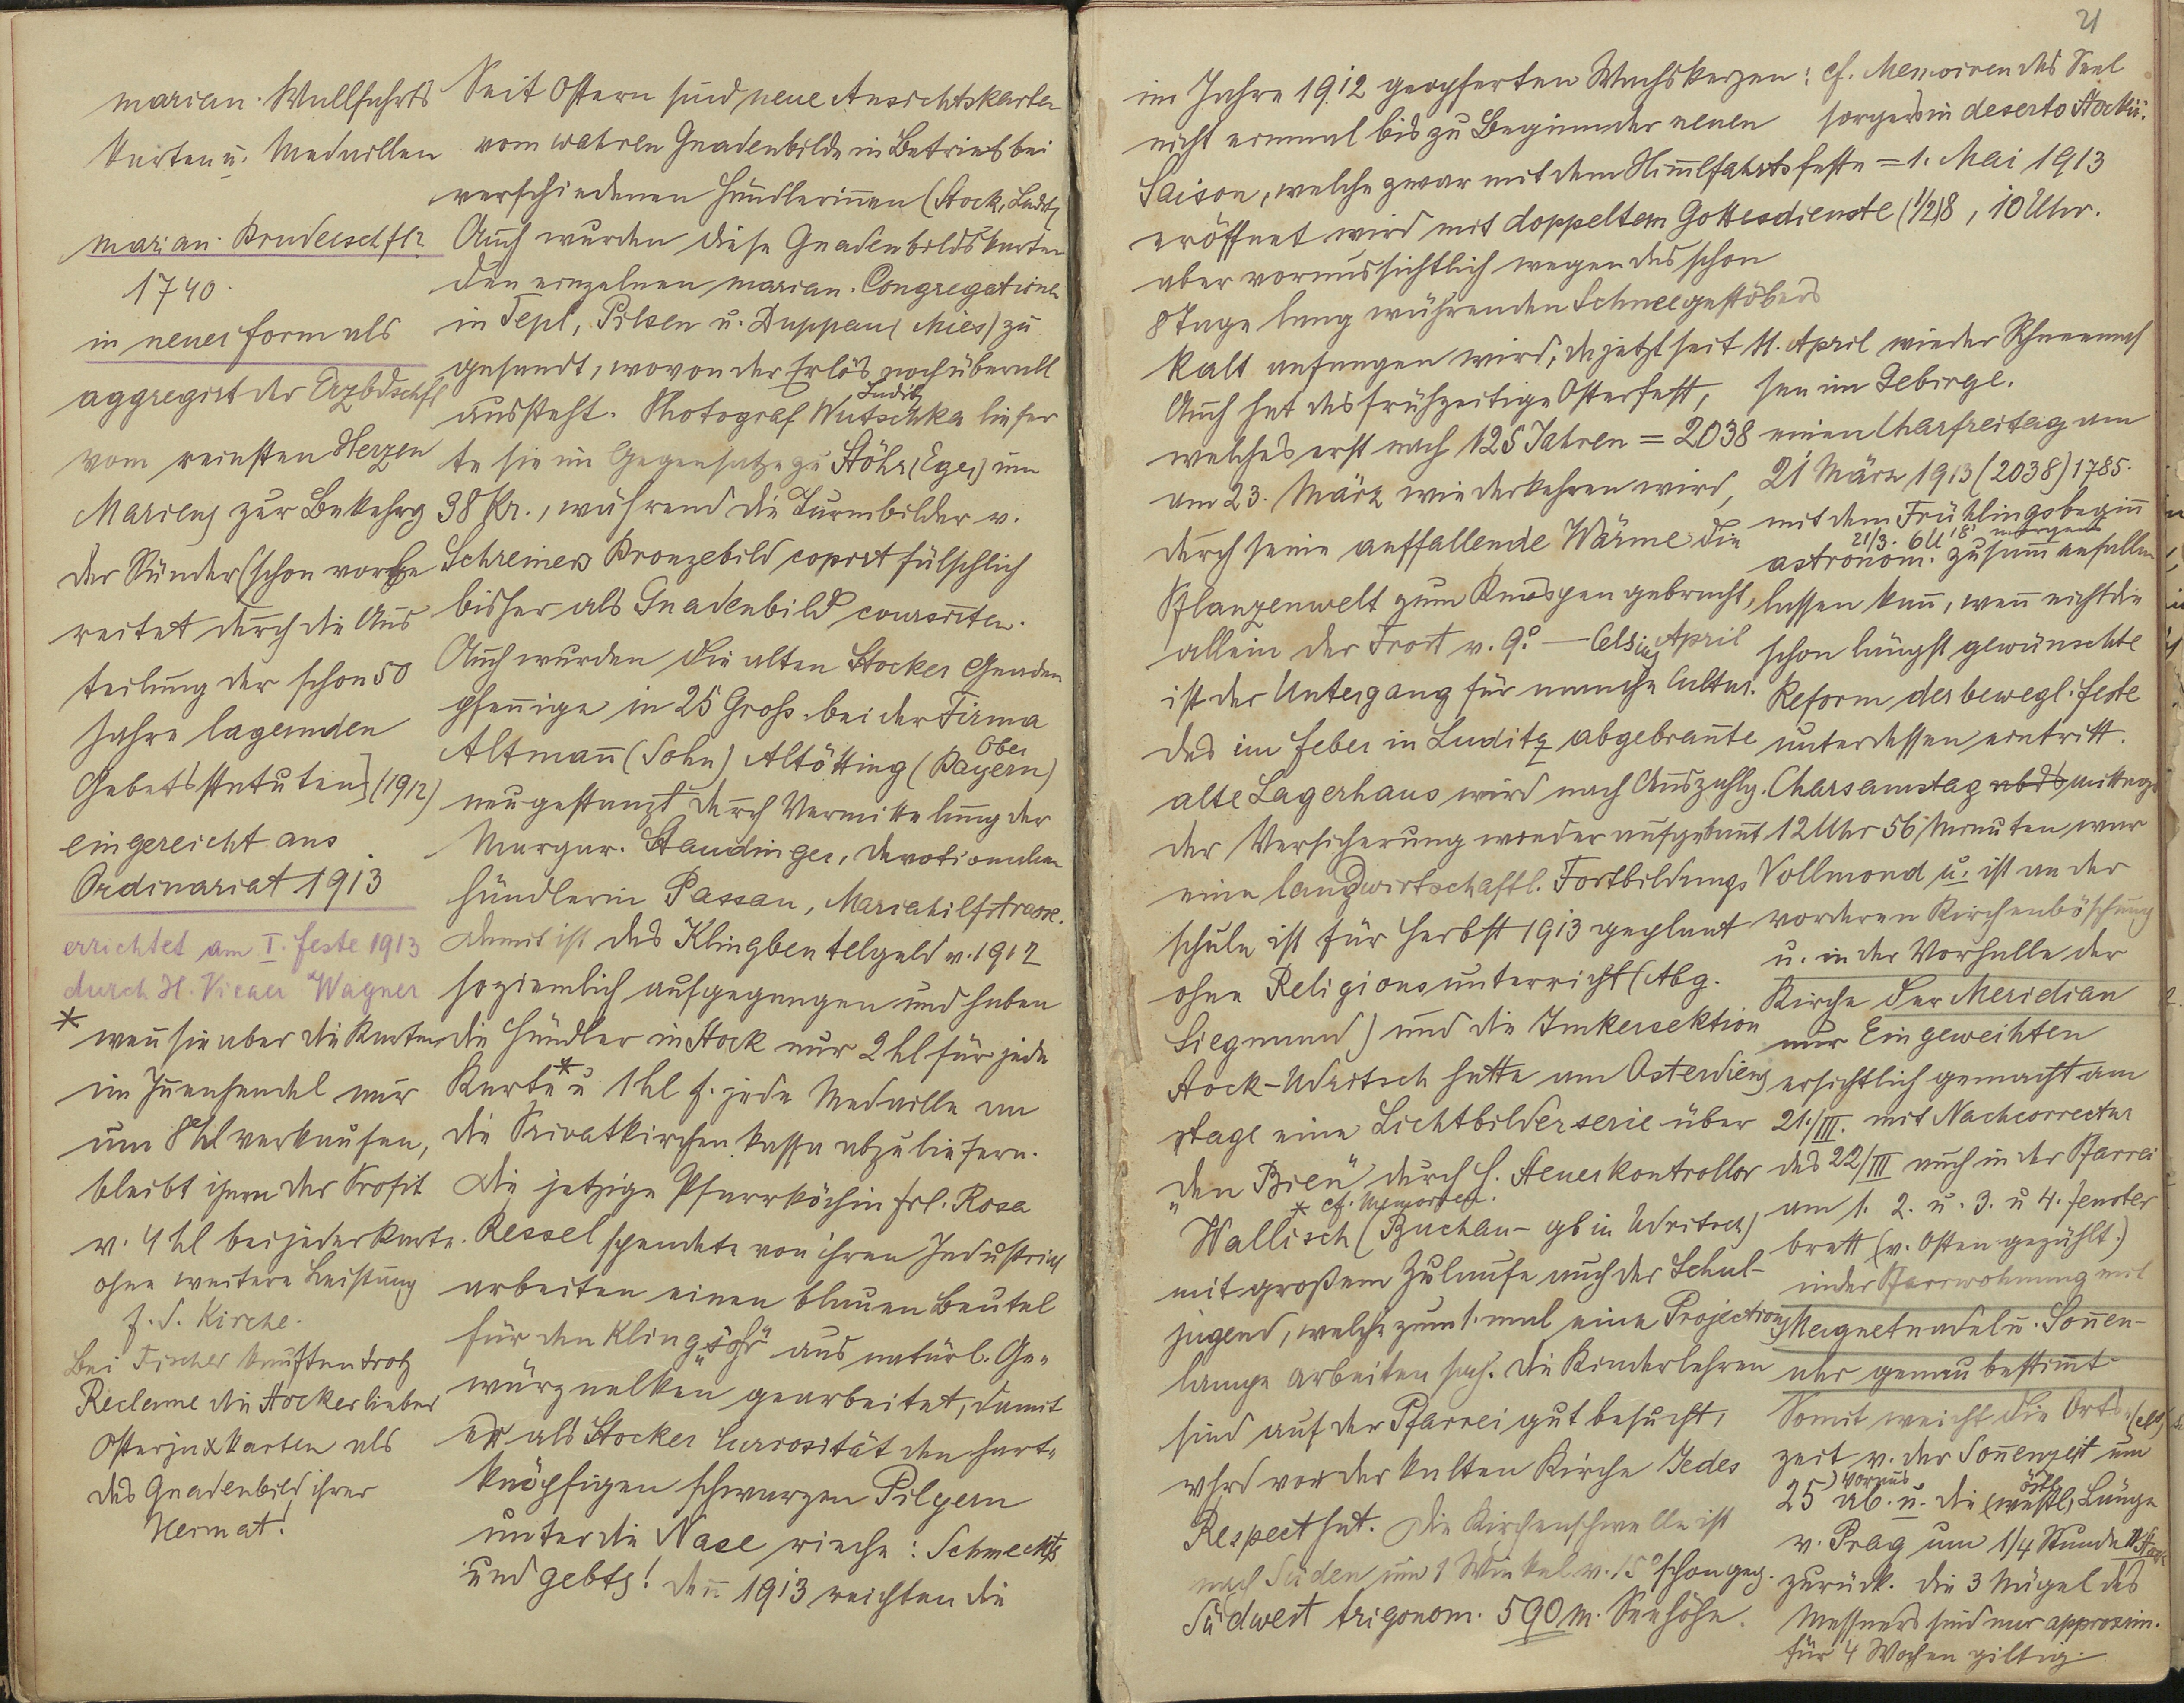 marian. Wallfahrts
Karten u. Medaillen
marian. Bruderschft
1740.
in neuer Form als
aggregirt der Erzbdschft
vom reinsten Herzen
Mariens zur Bekehrg
der Sünder (schon vorbe
reitet durch die Aus
teilung der schon 50
Jahre lagernden
Gebetsstatuten] (1912)
eingereicht ans
Ordinariat 1913
errichtet am I. Feste 1913
durch H. Vicaer Wagner
* wenn sie aber die Karten
im Inenhandel nur
um 8 hl verkaufen,
bleibt ihnen der Profit
v. 4 hl bei jeder Karte.
ohne weitere Leistung
f. d. Kirche.
Bei Fischer kauften trotz
Reclame die Stocker lieber
Osterjuxkarten als
das Gnadenbild ihrer
Heimat!
Seit Ostern sind neue Ansichtskarten
vom wahren Gnadenbilde in Betrieb bei
verschiedenen Händlerinnen (Stock, Luditz
Auch wurden diese Gnadenbildskarten
den einzelnen marian. Congregationen
in Tepl, Pilsen u. Duppau (Mies) zu
gesandt, wovon der Erlös noch überall
aussteht. Photograf Wutschka Luditz liefer
te sie im Gegensatze zu Stöhr (Eger) um
38 Kr., während die Turmbilder v.
Schreiners Bronzebild copirt fälschlich
bisher als Gnadenbild coursirten.
Auch wurden die alten Stocker Gnaden
pfennige in 25 Gross. bei der Firma
Altmann (Sohn) Altötting (Ober Bayern)
neugestanzt durch Vermittelung der
Margar. Staudinger, Devotionalien
händlerin Passau, Mariahilfstrasse.
Damit ist das Klingbeutelgeld v. 1912
so ziemlich aufgegangen und haben
die Händler in Stock nur 2 hl für jede
Karte * u 1 hl f. jede Medaille an
die Privatkirchenkassa abzuliefern.
Die jetzige Pfarrköchin Frl. Rosa
Ressel spendete von ihren Industrial
arbeiten einen blauen Beutel
für den Klings aus natürl. Ge-
würznelken gearbeitet, damit
er als Stocker Curiosität den hart-
knöpfigen schwarzen Pilgern
unter die Nase rieche: Schmeckts
und gebts! Denn 1913 reichten die
21
im Jahre 1912 geopferten Wachskerzen:
nicht einmal bis zu Beginn der neuen
Saison, welche zwar mit dem Himlfahrtsfeste = 1. Mai 1913
eröffnet wird mit doppeltem Gottesdienste (1/2)8, 10 Uhr.
aber voraussichtlich wegen des schon
8 Tage lang währenden Schneegestöbers
kalt anfangen wird, da jetzt seit 11. April wieder Schneemas
Auch hat das frühzeitige Osterfest,
welches erst nach 125 Jahren = 2038
am 23. März wiederkehren wird,
durch seine auffallende Wärme die
Pflanzenwelt zum Knospen gebracht,
allein der Frost v. 9.° – Celsius April
ist der Untergang für manche Cultur.
Das im Feber in Luditz abgebrannte
alte Lagerhaus wird nach Auszahlg.
der Versicherung wieder aufgebaut
eine landwirtschaftl. Fortbildungs
schule ist für Herbst 1913 geplant
ohne Religionsunterricht (Abg.
Siegmund) und die Imkersektion
Stock-Udritsch hatte am Osterdiens
tage eine Lichtbilderserie über
„den Bien“ durch H. Steuerkontrollor
* cf. Memoiren.
Wallisch (Buchau – gb in Udritsch)
mit großem Zulaufe auch der Schul-
jugend, welche zum 1. mal eine Projections
lampe arbeiten sah. Die Kinderlehren
sind auf der Pfarrei gut besucht,
whrd vor der kalten Kirche Jedes
Respect hat. Die Kirchenschwelle ist
nach Süden um 1 Winkel v. 15° schon geg.
Südwest trigonom. 590 m. Seehöhe.
cf. Memoiren des Seel
sorgers in deserto Stockii.
sen im Gebirge.
einen Charfreitag am
21 März 1913 (2038) 1785.
mit dem Frühlingsbeginn
21/3. 6U 18' morgens
astronom. zusammenfallen
lassen kann, wenn nicht die
schon längst gewünschte
Reform der bewegl. Feste
unterdessen eintritt.
Charsamstag abds mittags
12 Uhr 56 Minuten war
Vollmond u. ist an der
vorderen Kirchenböschung
u. in der Vorhalle der
Kirche der Meridian
nur Eingeweihten
ersichtlich gemacht am
21./III. mit Nachcorrectur
des 22/III auch in der Pfarrei
am 1. 2. u. 3. u 4. Fenster
brett (v. Osten gezählt.)
in der Pfarrwohnung mit
Magnetnadel u. Sonnen-
uhr genau bestimmt
Somit weicht die Orts-
zeit v. der Sonnenzeit um
25 voraus ab. u. die östl (westl) Länge
v. Prag um 1/4 Stunde
zurück. Die 3 Nägel des
Messners sind nur approxim.
für 4 Wochen giltig.